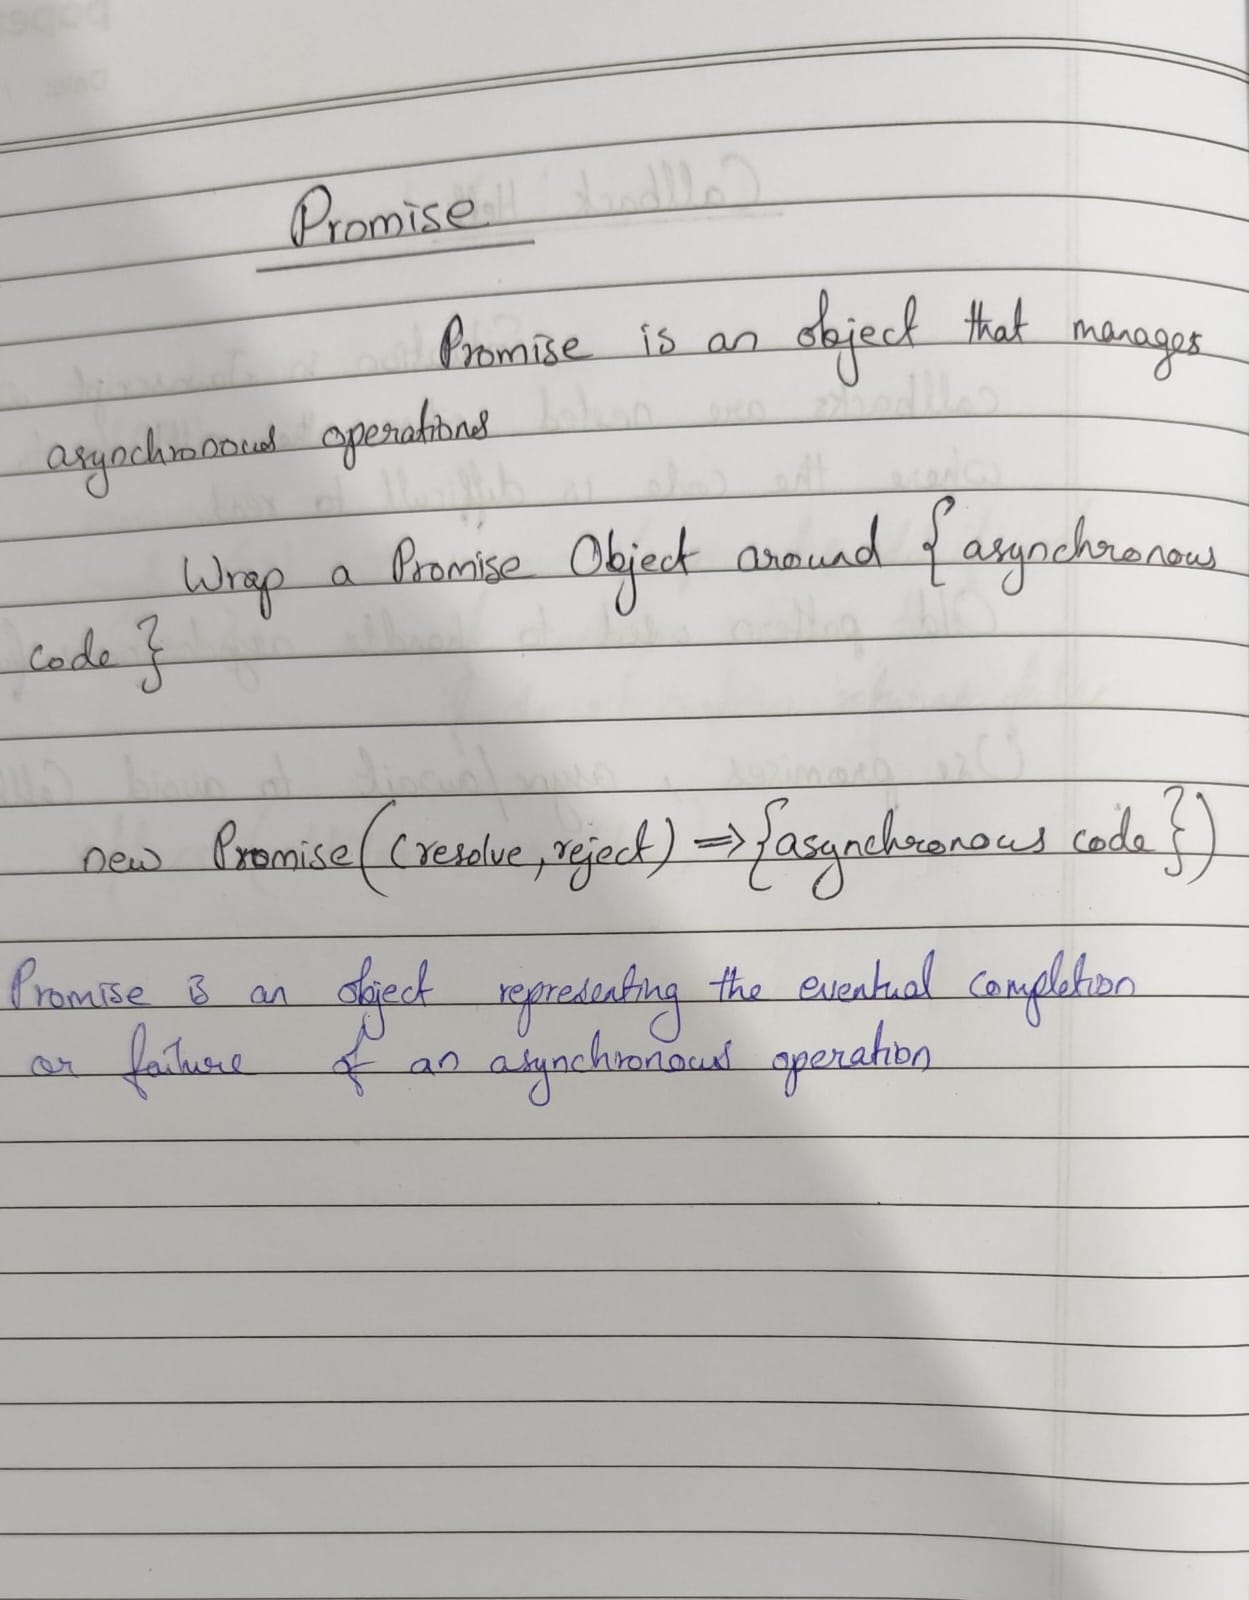 Promise
Promise is an object that manages
asynchronous operations
Wrap a Promise Object around { asynchronous
code }
new Promise((resolve, reject) => {asynchronous code})
Promise is an object representing the eventual completion
or failure of an asynchronous operation